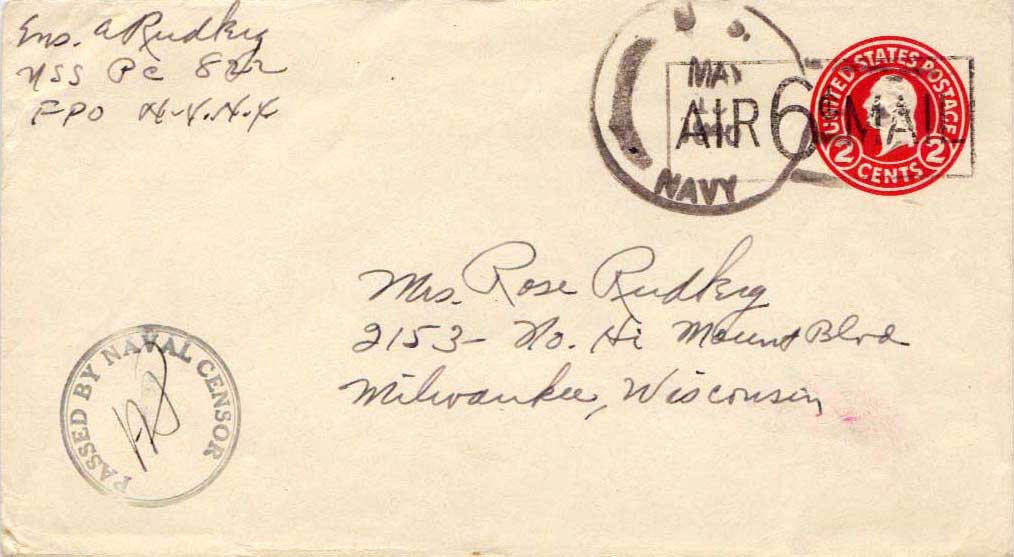 Ens. A Rudkig
USS PC 822
FPO N.Y.N.Y
U. S.
MAY
NAVY
AIR 6¢ MAIL
UNITED STATES POSTAGE
2 CENTS 2
Mrs. Rose Rudkig
2153- No. Hi Mount Blvd
Milwaukee, Wisconsin
PASSED BY NAVAL CENSOR